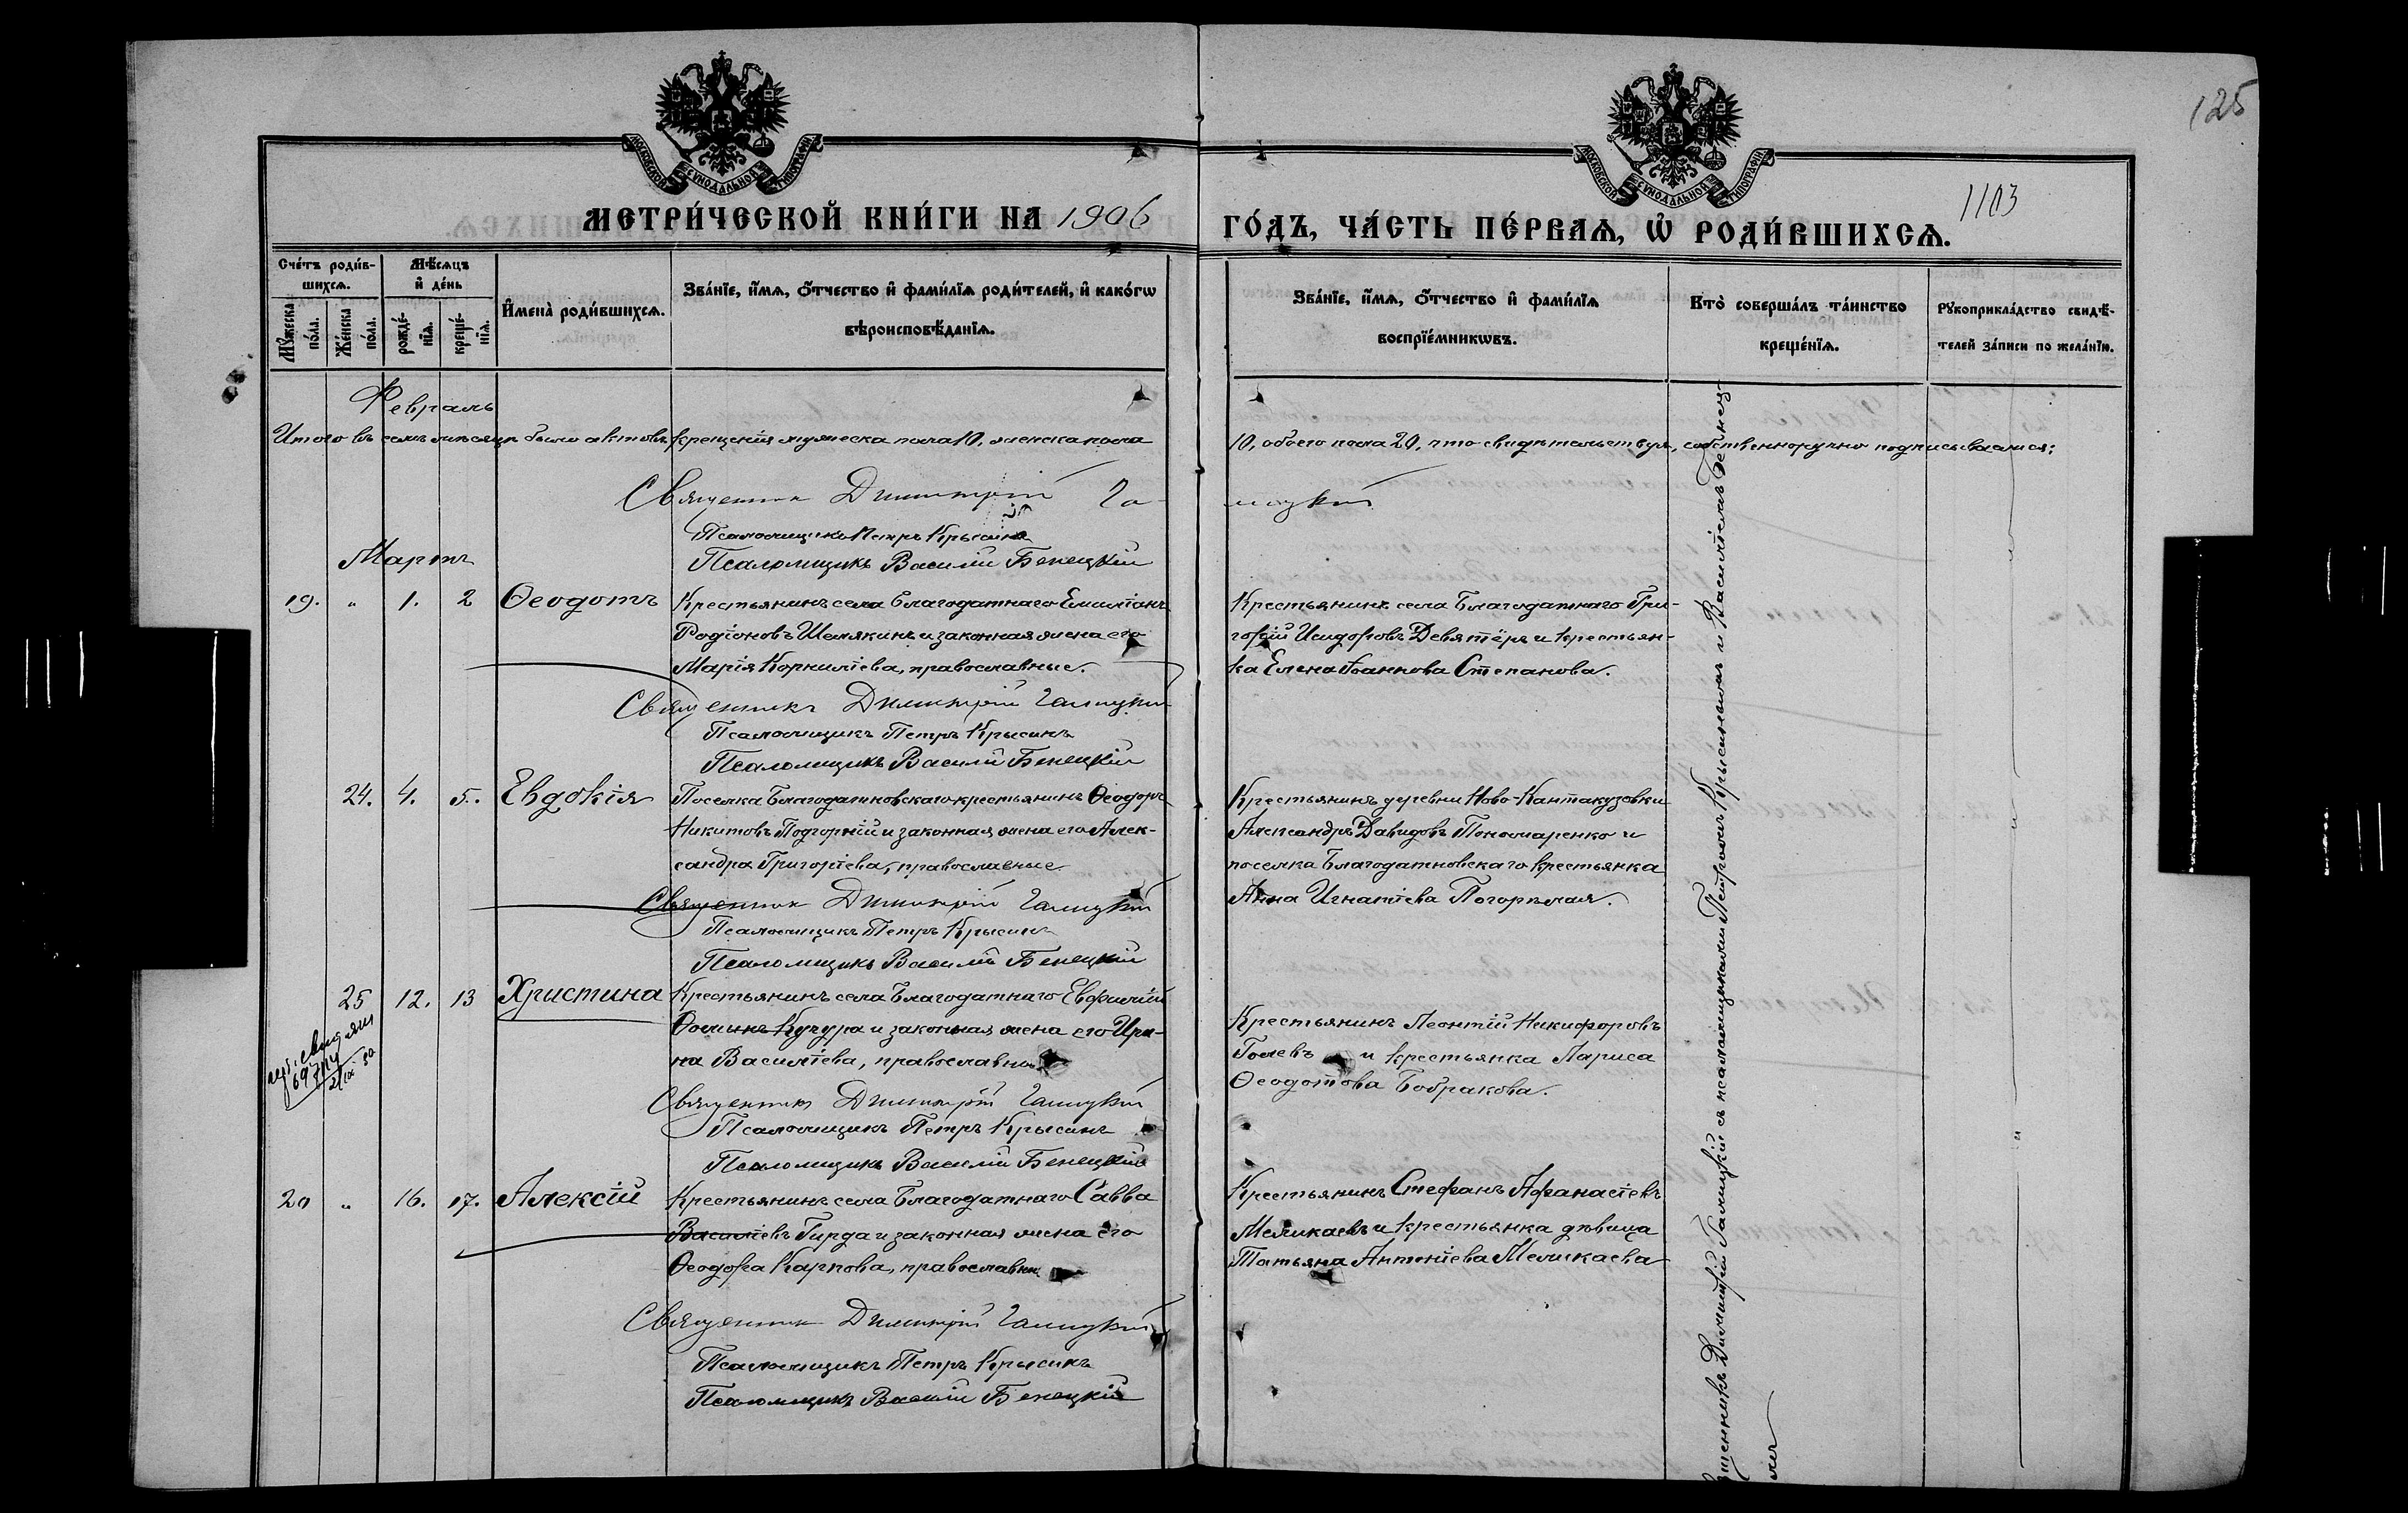 125
1103
МОСКОВСКОЙ СѴНОДАЛЬНОЙ ТИПОГРАФІИ
МОСКОВСКОЙ СѴНОДАЛЬНОЙ ТИПОГРАФІИ
МЕТРИ́ЧЕСКОЙ КНИ́ГИ НА 1906
ГО́ДЪ, ЧА́СТЬ ПЕ́РВАѦ, Ѡ҆ РОДИ́ВШИХСѦ.
Сче́тъ роди́в-
шихсѧ.
Мꙋ́жеска
по́ла.
Же́нска
по́ла.
Мѣ́сѧцъ
и҆ де́нь
рожде́-
нїѧ.
креще́-
нїѧ.
И҆мена̀ роди́вшихсѧ.
Зва́нїе, и҆́мѧ, ѻ҆́тчество и҆ фами́лїѧ роди́телей, и҆ како́гѡ
вѣроисповѣ́данїѧ.
Зва́нїе, и҆́мѧ, ѻ҆́тчество и҆ фами́лїѧ
воспрїе́мникѡвъ.
Кто̀ соверша́лъ та́инство
креще́нїѧ.
Рꙋкоприкла́дство свидѣ́-
телей за́писи по жела́нїю.
Февраль
Итого въ семъ мѣсяцѣ было актовъ крещенія мужеска пола 10, женска пола
10, обоего пола 20, что свидѣтельствуя, собственноручно подписываемся:
Священник Димитрій Га-
лицкій
Псаломщикъ Петръ Крысинъ
Псаломщикъ Василій Бенецкій
Мартъ
19. " 1. 2 Ѳеодотъ
Крестьянинъ села Благодатнаго Емиліанъ
Родіоновъ Шемякинъ и законная жена его
Марія Корниліева, православные.
Крестьянинъ села Благодатнаго Гри-
горій Исидоровъ Девятёръ и крестьян-
ка Елена Іоаннова Степанова.
Священникъ Димитрій Галицкій
Псаломщикъ Петръ Крысинъ
Псаломщикъ Василій Бенецкій
24. 4. 5. Евдокія
Поселка Благодатновскаго крестьянинъ Ѳеодоръ
Никитовъ Подгорній и законная жена его Алек-
сандра Григоріева, православные
Крестьянинъ деревни Ново-Кантакузовки
Александръ Давидовъ Пономаренко и
поселка Благодатновскаго крестьянка
Анна Игнатіева Погорѣлая.
Священник Димитрій Галицкій
Псаломщикъ Петръ Крысинъ
Псаломщикъ Василій Бенецкій
25 12. 13 Христина
Крестьянинъ села Благодатнаго Евфимій
Ѳоминъ Кучура и законная жена его Ири-
на Василіева, православны
Крестьянинъ Леонтій Никифоровъ
Голевъ и крестьянка Лариса
Ѳеодотова Бобракова.
Священник Димитрій Галицкій
Псаломщикъ Петръ Крысинъ
Псаломщикъ Василій Бенецкій
20 " 16. 17. Алексій
Крестьянинъ села Благодатнаго Савва
Василіевъ Гирда и законная жена его
Ѳеодора Карпова, православны
Крестьянинъ Стефанъ Аѳанасіевъ
Меликаевъ и крестьянка дѣвица
Татьяна Антоніева Меликаева
Священник Димитрій Галицкій
Псаломщикъ Петръ Крысинъ
Псаломщикъ Василій Бенецкій
Димитрій Галицкій съ псаломщиками Петромъ Крысинымъ и Василіемъ Бенец-